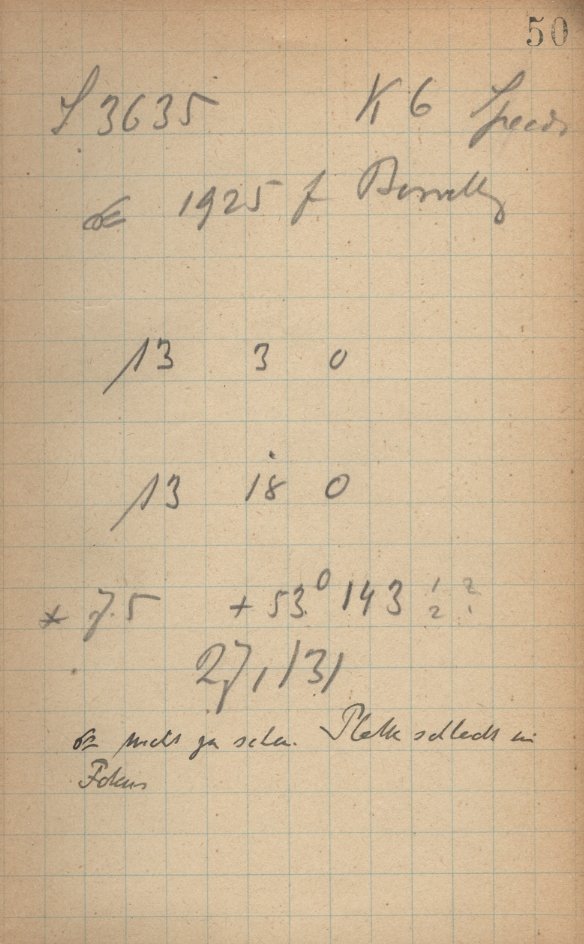 50
S 3635 K 6 Speed
☄ 1925 f Borrelly
13 3 0
13 18 0
* 7.5 + 53.0 143 1/2 2/1
27, 131
☄ nicht zu sehen. Platte schlecht im
Fokus